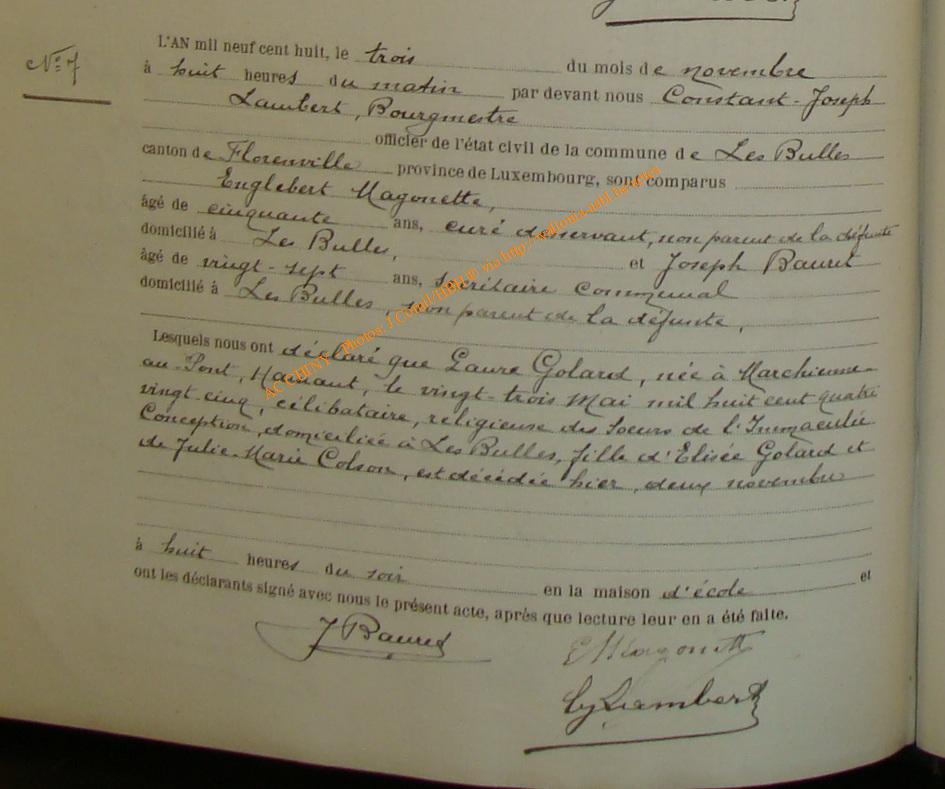 L'AN mil neuf cent huit, le trois du mois de novembre
N° 7
à huit heures du matin par devant nous Constant-Joseph
Lambert, Bourgmestre
officier de l'état civil de la commune de Les Bulles
canton de Florenville province de Luxembourg, sont comparus
Englebert Magonette,
âgé de cinquante ans, curé desservant, non parent de la défunte
domicilié à Les Bulles, et Joseph Bauret
âgé de vingt-sept ans, secrétaire communal
domicilié à Les Bulles, non parent de la défunte,
Lesquels nous ont déclaré que Laure Golard, née à Marchienne-
au-Pont, Hainaut, le vingt-trois Mai mil huit cent quatre
vingt cinq, célibataire, religieuse des Soeurs de l'Immaculée
Conception, domiciliée à Les Bulles, fille d'Elisée Golard et
de Julie-Marie Colson, est décédée hier, deux novembre
à huit heures du soir en la maison d'école et
ont les déclarants signé avec nous le présent acte, après que lecture leur en a été faite.
J Bauret
E Magonette
CJ Lambert
AC CHINY - Photos: J.Collin/HBH.® via http://